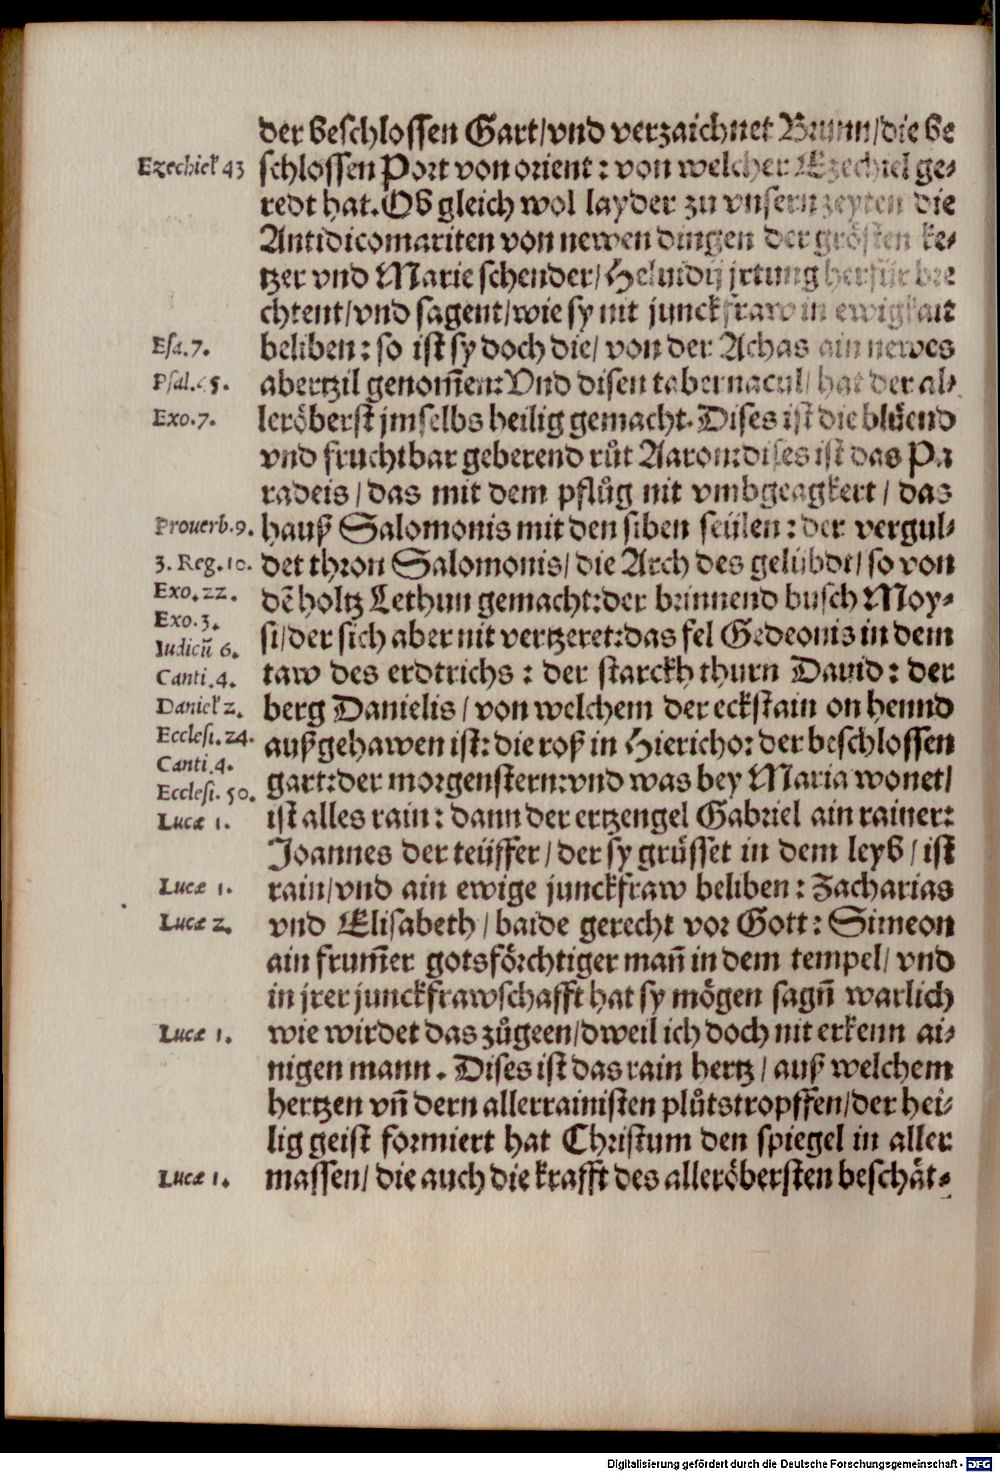 der beschlossen Gart/vnd verzaichnet Brunn/die be
Ezechiel 43 schlossen Port von orient: von welcher Ezechiel ge-
redt hat. Ob gleich wol layder zu vnsern zeyten die
Antidicomariten von newen dingen der grösten ke-
tzer vnd Marie schender/Heluidij jrtung herfür bre
chtent/vnd sagent/wie sy nit junckfraw in ewigkait
Esa. 7. beliben: so ist sy doch die/ von der Achas ain newes
Psal. 45. abertzil genom̄en: Vnd disen tabernacul/ hat der al-
Exo. 7. leröberst jmselbs heilig gemacht. Dises ist die blüend
vnd fruchtbar geberend růt Aaron: dises ist das Pa
radeis/das mit dem pflůg nit vmbgeagkert/ das
Prouerb. 9. hauß Salomonis mit den siben seülen: der vergul-
3. Reg. 10. det thron Salomonis/ die Arch des gelübdt/ so von
Exo. 22. dē holtz Lethun gemacht: der brinnend busch Moy-
Exo. 3. si/der sich aber nit vertzeret: das fel Gedeonis in dem
Iudicū 6. taw des erdtrichs: der starckh thurn Dauid: der
Canti. 4.
Daniel 2. berg Danielis/ von welchem der eckstain on hennd
Ecclesi. 24. außgehawen ist: die roß in Hiericho: der beschlossen
Canti. 4. gart: der morgenstern: vnd was bey Maria wonet/
Ecclesi. 50.
Lucæ 1. ist alles rain: dann der ertzengel Gabriel ain rainer:
Joannes der teüffer/ der sy grüsset in dem leyb/ ist
Lucæ 1. rain/vnd ain ewige junckfraw beliben: Zacharias
Lucæ 2. vnd Elisabeth/ baide gerecht vor Gott: Simeon
ain frum̄er gotsförchtiger man̄ in dem tempel/ vnd
in jrer junckfrawschafft hat sy mögen sagn̄ warlich
Lucæ 1. wie wirdet das zůgeen/dweil ich doch nit erkenn ai-
nigen mann. Dises ist das rain hertz/ auß welchem
hertzen vn̄ dern allerrainisten plůtstropffen/der hei-
lig geist formiert hat Christum den spiegel in aller
Lucæ 1. massen/ die auch die krafft des alleröbersten beschät-
Digitalisierung gefördert durch die Deutsche Forschungsgemeinschaft - DFG